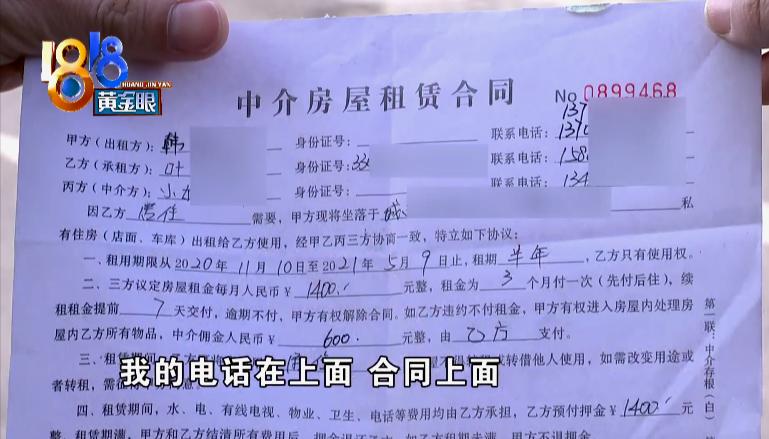 1818
HUANG JIN YAN
黄金眼
中介房屋租赁合同
No 0899468
137
甲方(出租方):韩 身份证号: 联系电话:131
乙方(承租方):叶 身份证号:33 联系电话:158
丙方(中介方):小 身份证号: 联系电话:134
因乙方 居住 需要,甲方现将坐落于 城 私
有住房(店面、车库)出租给乙方使用,经甲乙丙三方协商一致,特立如下协议:
一、租用期限从2020年11月10日至2021年5月9日止,租期 半年 ,乙方只有使用权。
二、三方议定房屋租金每月人民币¥ 1400. 元整,租金为 3 个月付一次(先付后住),续
租租金提前 7 天交付,逾期不付,甲方有权解除合同。如乙方违约不付租金,甲方有权进入房屋内处理房
屋内乙方所有物品,中介佣金人民币¥ 600. 元整,由 乙方 支付。
三、租赁期间 转借他人使用,如需改变用途或
者转租,需
我的电话在上面 合同上面
四、租赁期间,水、电、有线电视、物业、卫生、电话等费用均由乙方承担,乙方预付押金¥1400. 元
整,租赁期满,甲方和乙方结清所有费用后,押金退还乙方,如乙方租期未满,甲方不退押金。
第一联:中介存根(白)